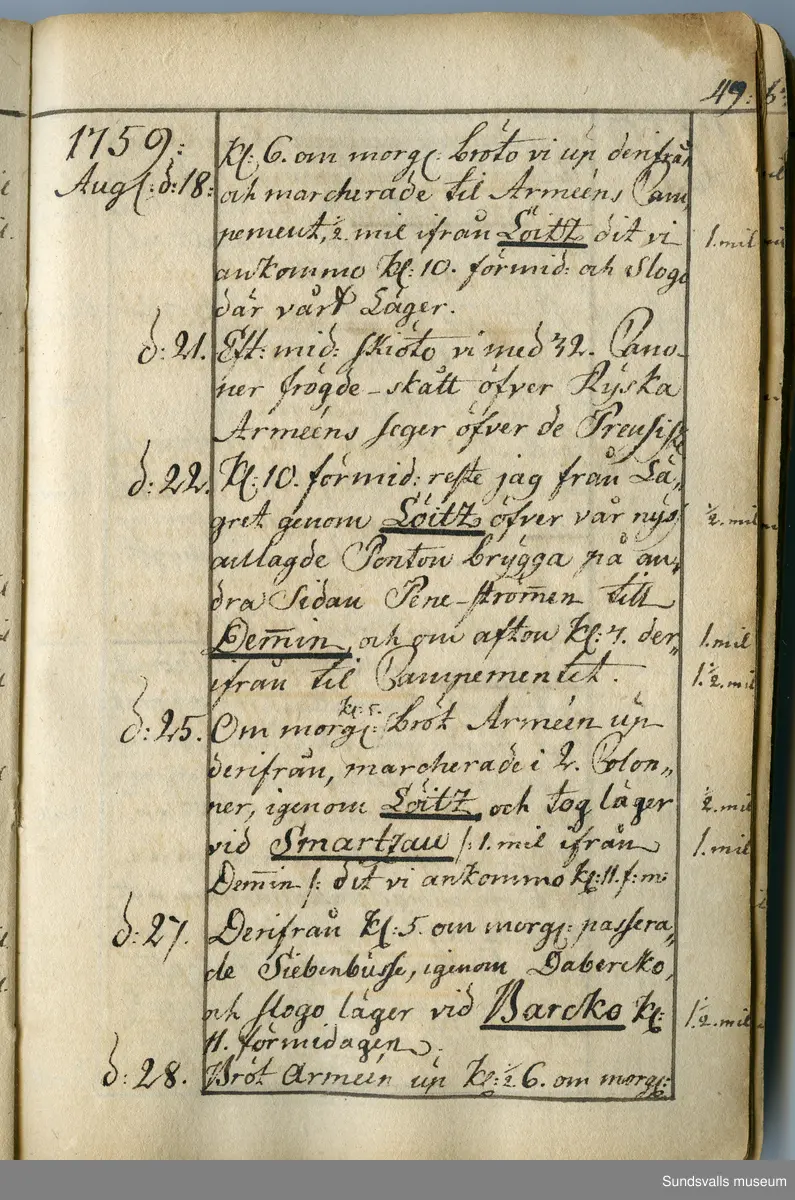 49:
1759:
Aug: d: 18: Kl: 6. om morg: bröto vi up derifrån
och marcherade til Arméens Cam„
pement, ½ mil ifrån Löitz dit vi 1. mil
ankommo Kl: 10. förmid: och slogo
där vårt Läger.
d: 21. Eft: mid: skiöto vi med 32. Cano-
ner frögde-skått öfver Ryska
Arméens seger öfver de Preusiske
d: 22. Kl: 10. förmid: reste jag från Lä„
gret genom Löitz öfver vår nys ½. mil
anlagde Ponton brygga på an„
dra Sidan Pene-strömen till
Demin, och om afton Kl: 7. der„ 1. mil
ifrån til Campementet. 1.½. mil
d: 25. Om morg: kl: 5. bröt Arméen up
derifrån, marcherade i 2. Colon„
ner, igenom Löitz och tog läger ½ mil
vid Smartzau /: 1. mil ifrån 1. mil
Demin /: dit vi ankommo Kl: 11. f: m:
d: 27. Derifrån Kl: 5. om morg: passera„
de Siebenbüsse, igenom Dabercko,
och slogo läger vid Barcko Kl: 1.½. mil
11. förmidagen.
d: 28. Bröt Arméen up Kl: ½ 6. om morg:
Sundsvalls museum